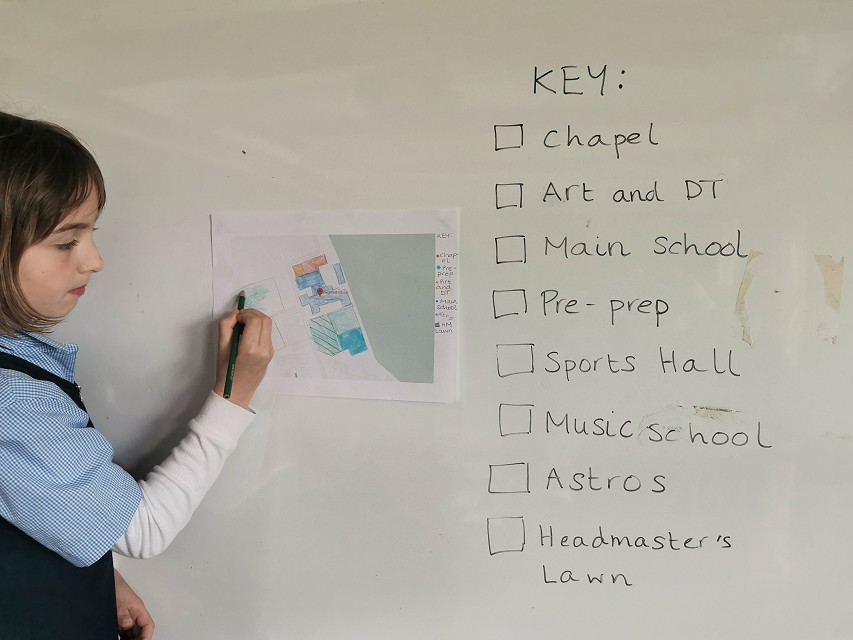 KEY:
Chapel
Art and DT
Main School
Pre-prep
Sports Hall
Music School
Astros
Headmaster's
Lawn
KEY:
Pre-
prep
Art
and
DT
Main
school
HM
Lawn